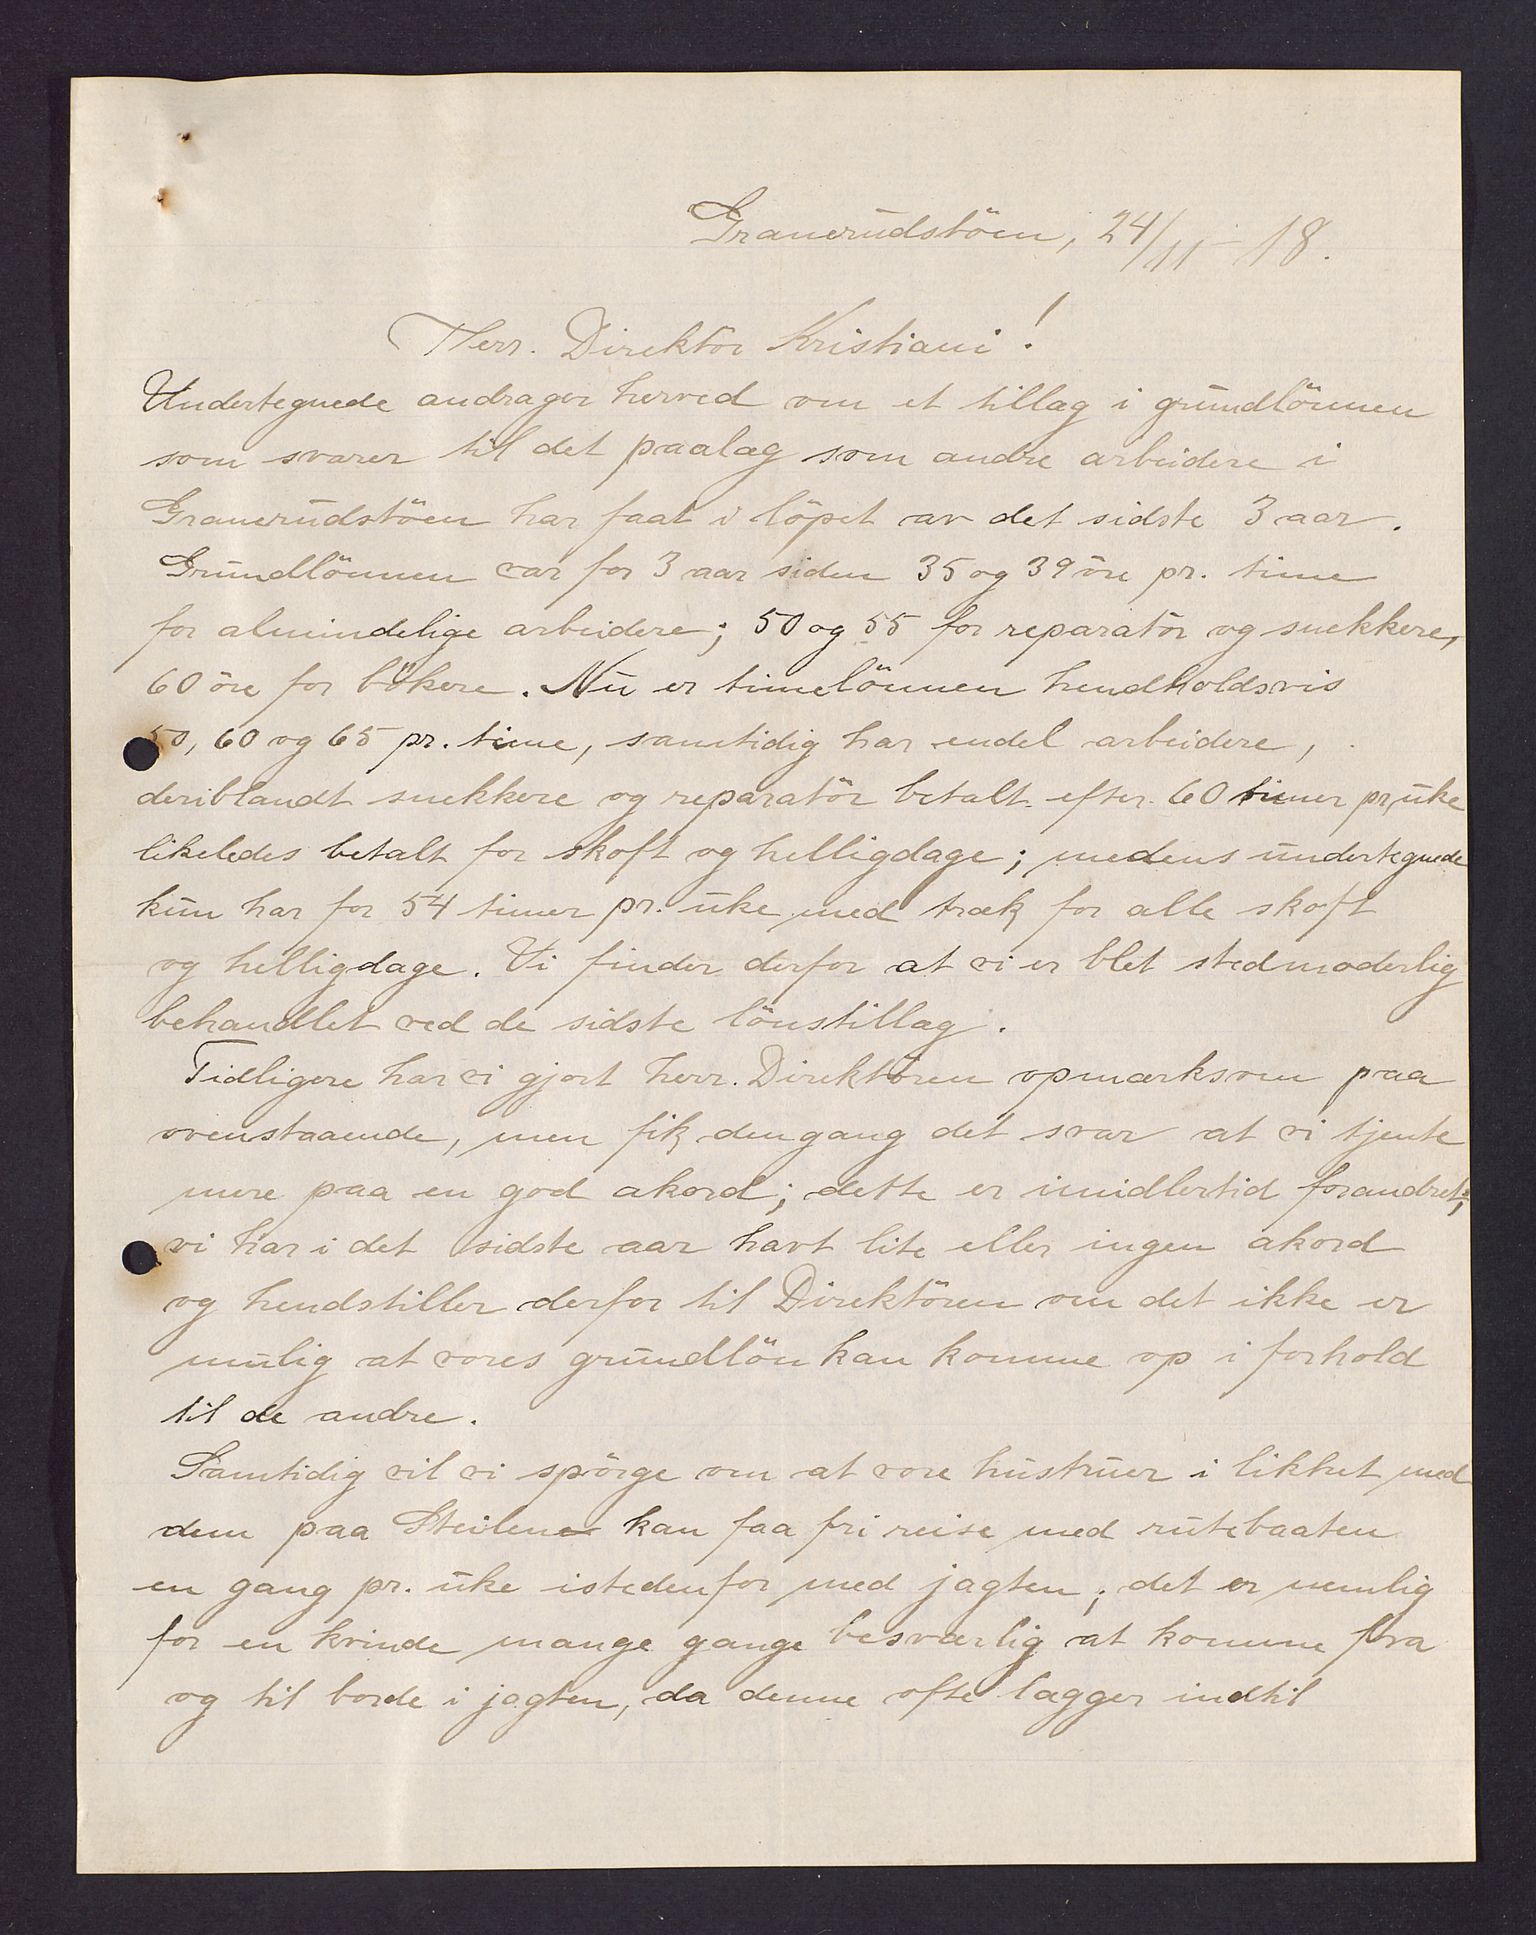 Granerudstöen, 24/11 - 18.
Herr. Direktör Kristiani!
Undertegnede andrager herved om et tillæg i grundlönnen
som svarer til det paalæg som andre arbeidere i
Granerudstöen har faat i löpet av det sidste 3 aar.
Grundlönnen var for 3 aar siden 35 og 39 öre pr. time
for almindelige arbeidere; 50 og 55 for reparatör og snekkere,
60 öre for bökere. Nu er timelönnen hendholdsvis
50, 60 og 65 pr. time, samtidig har endel arbeidere,
deriblandt snekkere og reparatör betalt efter 60 timer pr, uke
likeledes betalt for skoft og helligdage; medens undertegnede
kun har for 54 timer pr. uke med træk for alle skoft
og helligdage. Vi finder derfor at vi er blet stedmoderlig
behandlet ved de sidste lönstillæg.
Tidligere har vi gjort herr. Direktören opmærksom paa
ovenstaaende, men fik dengang det svar at vi tjente
mere paa en god akord; dette er imidlertid forandret;
vi har i det sidste aar havt lite eller ingen akord
og hendstiller derfor til Direktören om det ikke er
mulig at vores grundlön kan komme op i forhold
til de andre.
Samtidig vil vi spörge om at vore hustruer i likhet med
dem paa Steilene kan faa fri reise med rutebaaten
en gang pr. uke istedenfor med jagten; det er nemlig
for en kvinde mange gange besværlig at komme fra
og til borde i jagten, da denne ofte lægger indtil